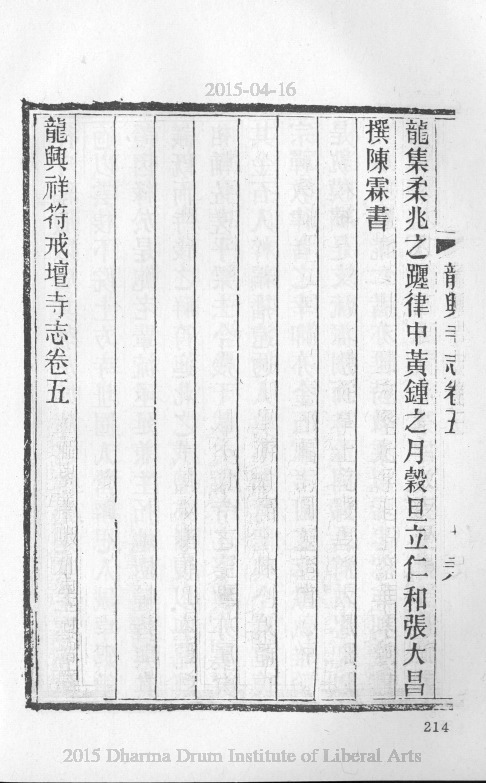 2015-04-16
龍興寺志卷五
龍集柔兆之躔律中黃鍾之月穀旦立仁和張大昌
撰陳霖書
龍興祥符戒壇寺志卷五
214
2015 Dharma Drum Institute of Liberal Arts